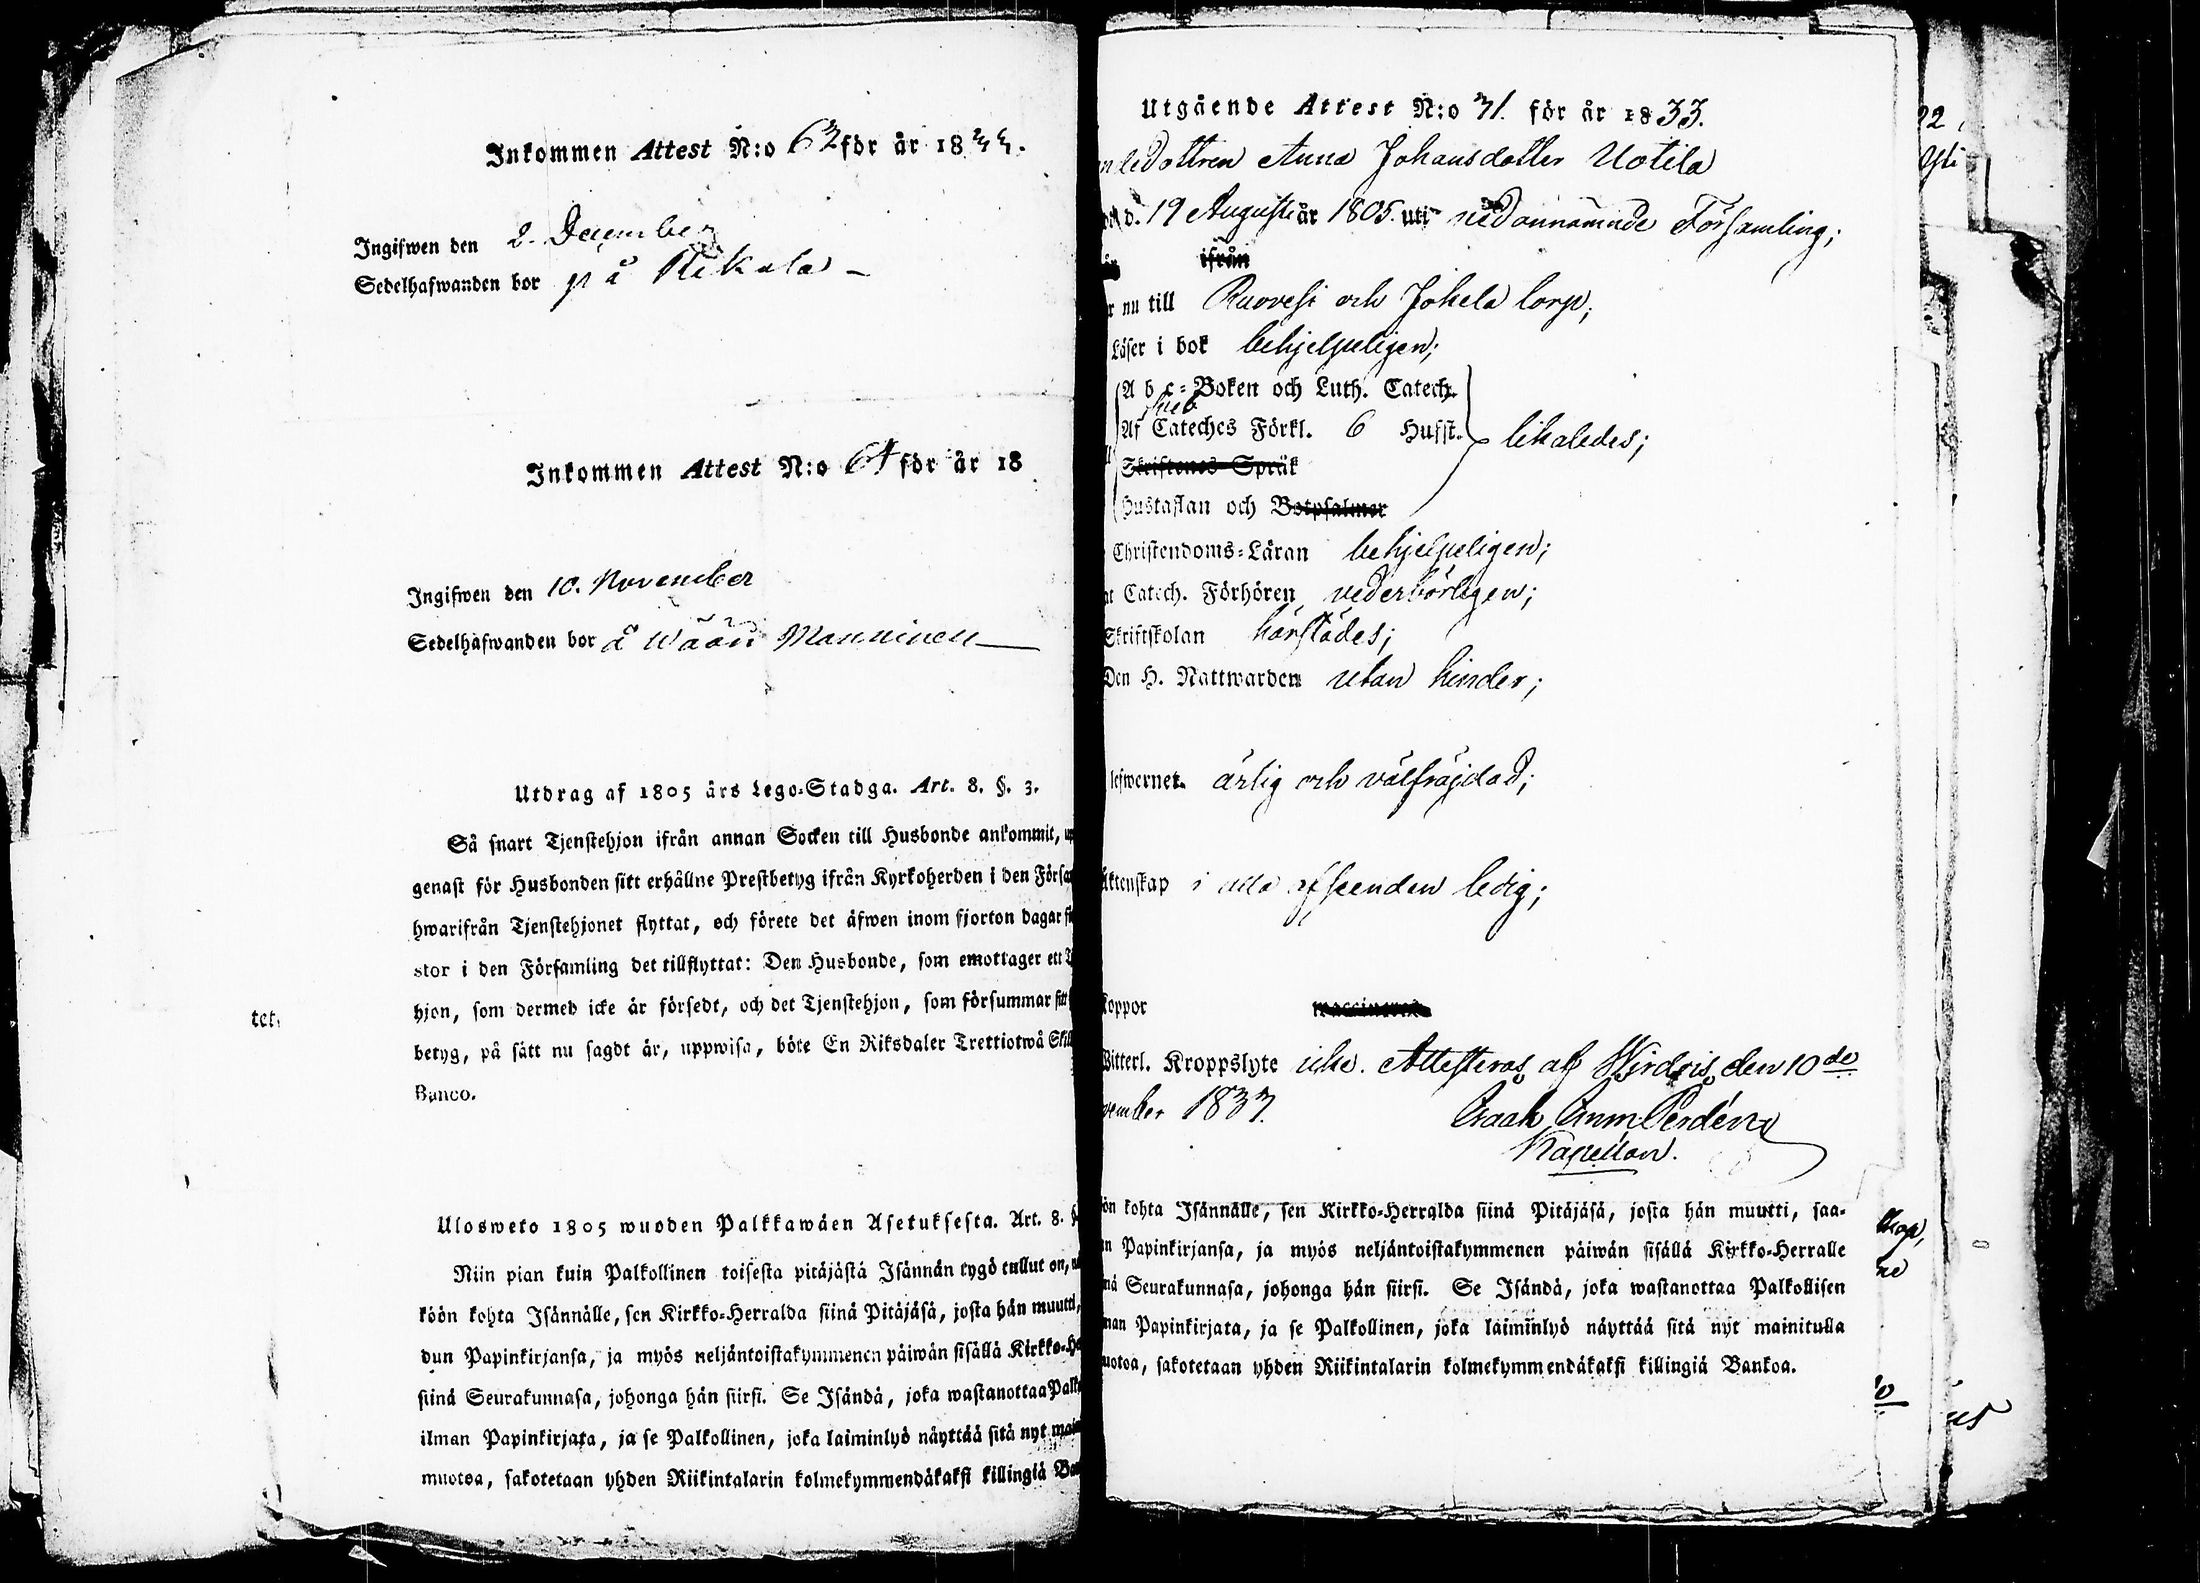 Inkommen Attest N:o 63 för år 1833.
Ingifwen den 2. December
Sedelhafwanden bor på
Inkommen Attest N:o 64 för år 18
Ingifwen den 10. November
Sedelhafwanden bor å Wääri Manninen
Utdrag af 1805 års Lego-Stadga. Art. 8. §. 3.
Så snart Tjenstehjon ifrån annan Socken till Husbonde ankommit, up
genast för Husbonden sitt erhållne Prestbetyg ifrån Kyrkoherden i den Försa
hwarifrån Tjenstehjonet flyttat, och förete det äfwen inom fjorton dagar
stor i den Församling det tillflyttat: Den Husbonde, som emottager ett
hjon, som dermed icke är försedt, och det Tjenstehjon, som försummar sitt
tet,
betyg, på sätt nu sagdt är, uppwisa, böte En Riksdaler Trettiotwå Skill
Banco.
Ulosweto 1805 wuoden Palkkawäen Asetuksesta. Art. 8. §
Niin pian kuin Palkollinen toisesta pitäjästä Isännän tygö tullut on, nä
köön kohta Isännälle, sen Kirkko-Herralda siinä Pitäjäsä, josta hän muutti,
dun Papinkirjansa, ja myös neljäntoistakymmenen päiwän sisällä Kirkko-He
siinä Seurakunnasa, johonga hän siirsi. Se Isändä, joka wastanottaa Palko
ilman Papinkirjata, ja se Palkollinen, joka laiminlyö näyttää sitä nyt main
muotoa, sakotetaan yhden Riikintalarin kolmekymmendäkaksi killingiä Ban
Utgående Attest N:o 31. för år 1833.
dottren Anna Johansdotter Uotila
d. 19 Augusti år 1805. uti nedannämnde Församling;
ifrån
r nu till Ruovesi och Jokela torp;
Läser i bok behjelpeligen;
A b c-Boken och Luth. Catech.
Sveb
Af Cateches Förkl. 6 Husst. likaledes;
Skriftenes Språk
Hustaflan och Botpsalmer
Christendoms-Läran behjelpeligen;
t Catech. Förhören vederbörligen;
Skriftskolan härstädes;
Den H. Nattwarden utan hinder;
lefwernet. ärlig och välfräjdad;
Äktenskap i alla afseenden ledig;
Koppor vaccinerad
Witterl. Kroppslyte icke. Attesteras af Wirdois den 10de
vember 1833.
Isaak
Kapellan.
ön kohta Isännälle, sen Kirkko-Herralda siinä Pitäjäsä, josta hän muutti, saa-
n Papinkirjansa, ja myös neljäntoistakymmenen päiwän sisällä Kirkko-Herralle
nä Seurakunnasa, johonga hän siirsi. Se Isändä, joka wastanottaa Palkollisen
man Papinkirjata, ja se Palkollinen, joka laiminlyö näyttää sitä nyt mainitulla
uotoa, sakotetaan yhden Riikintalarin kolmekymmendäkaksi killingiä Bankoa.